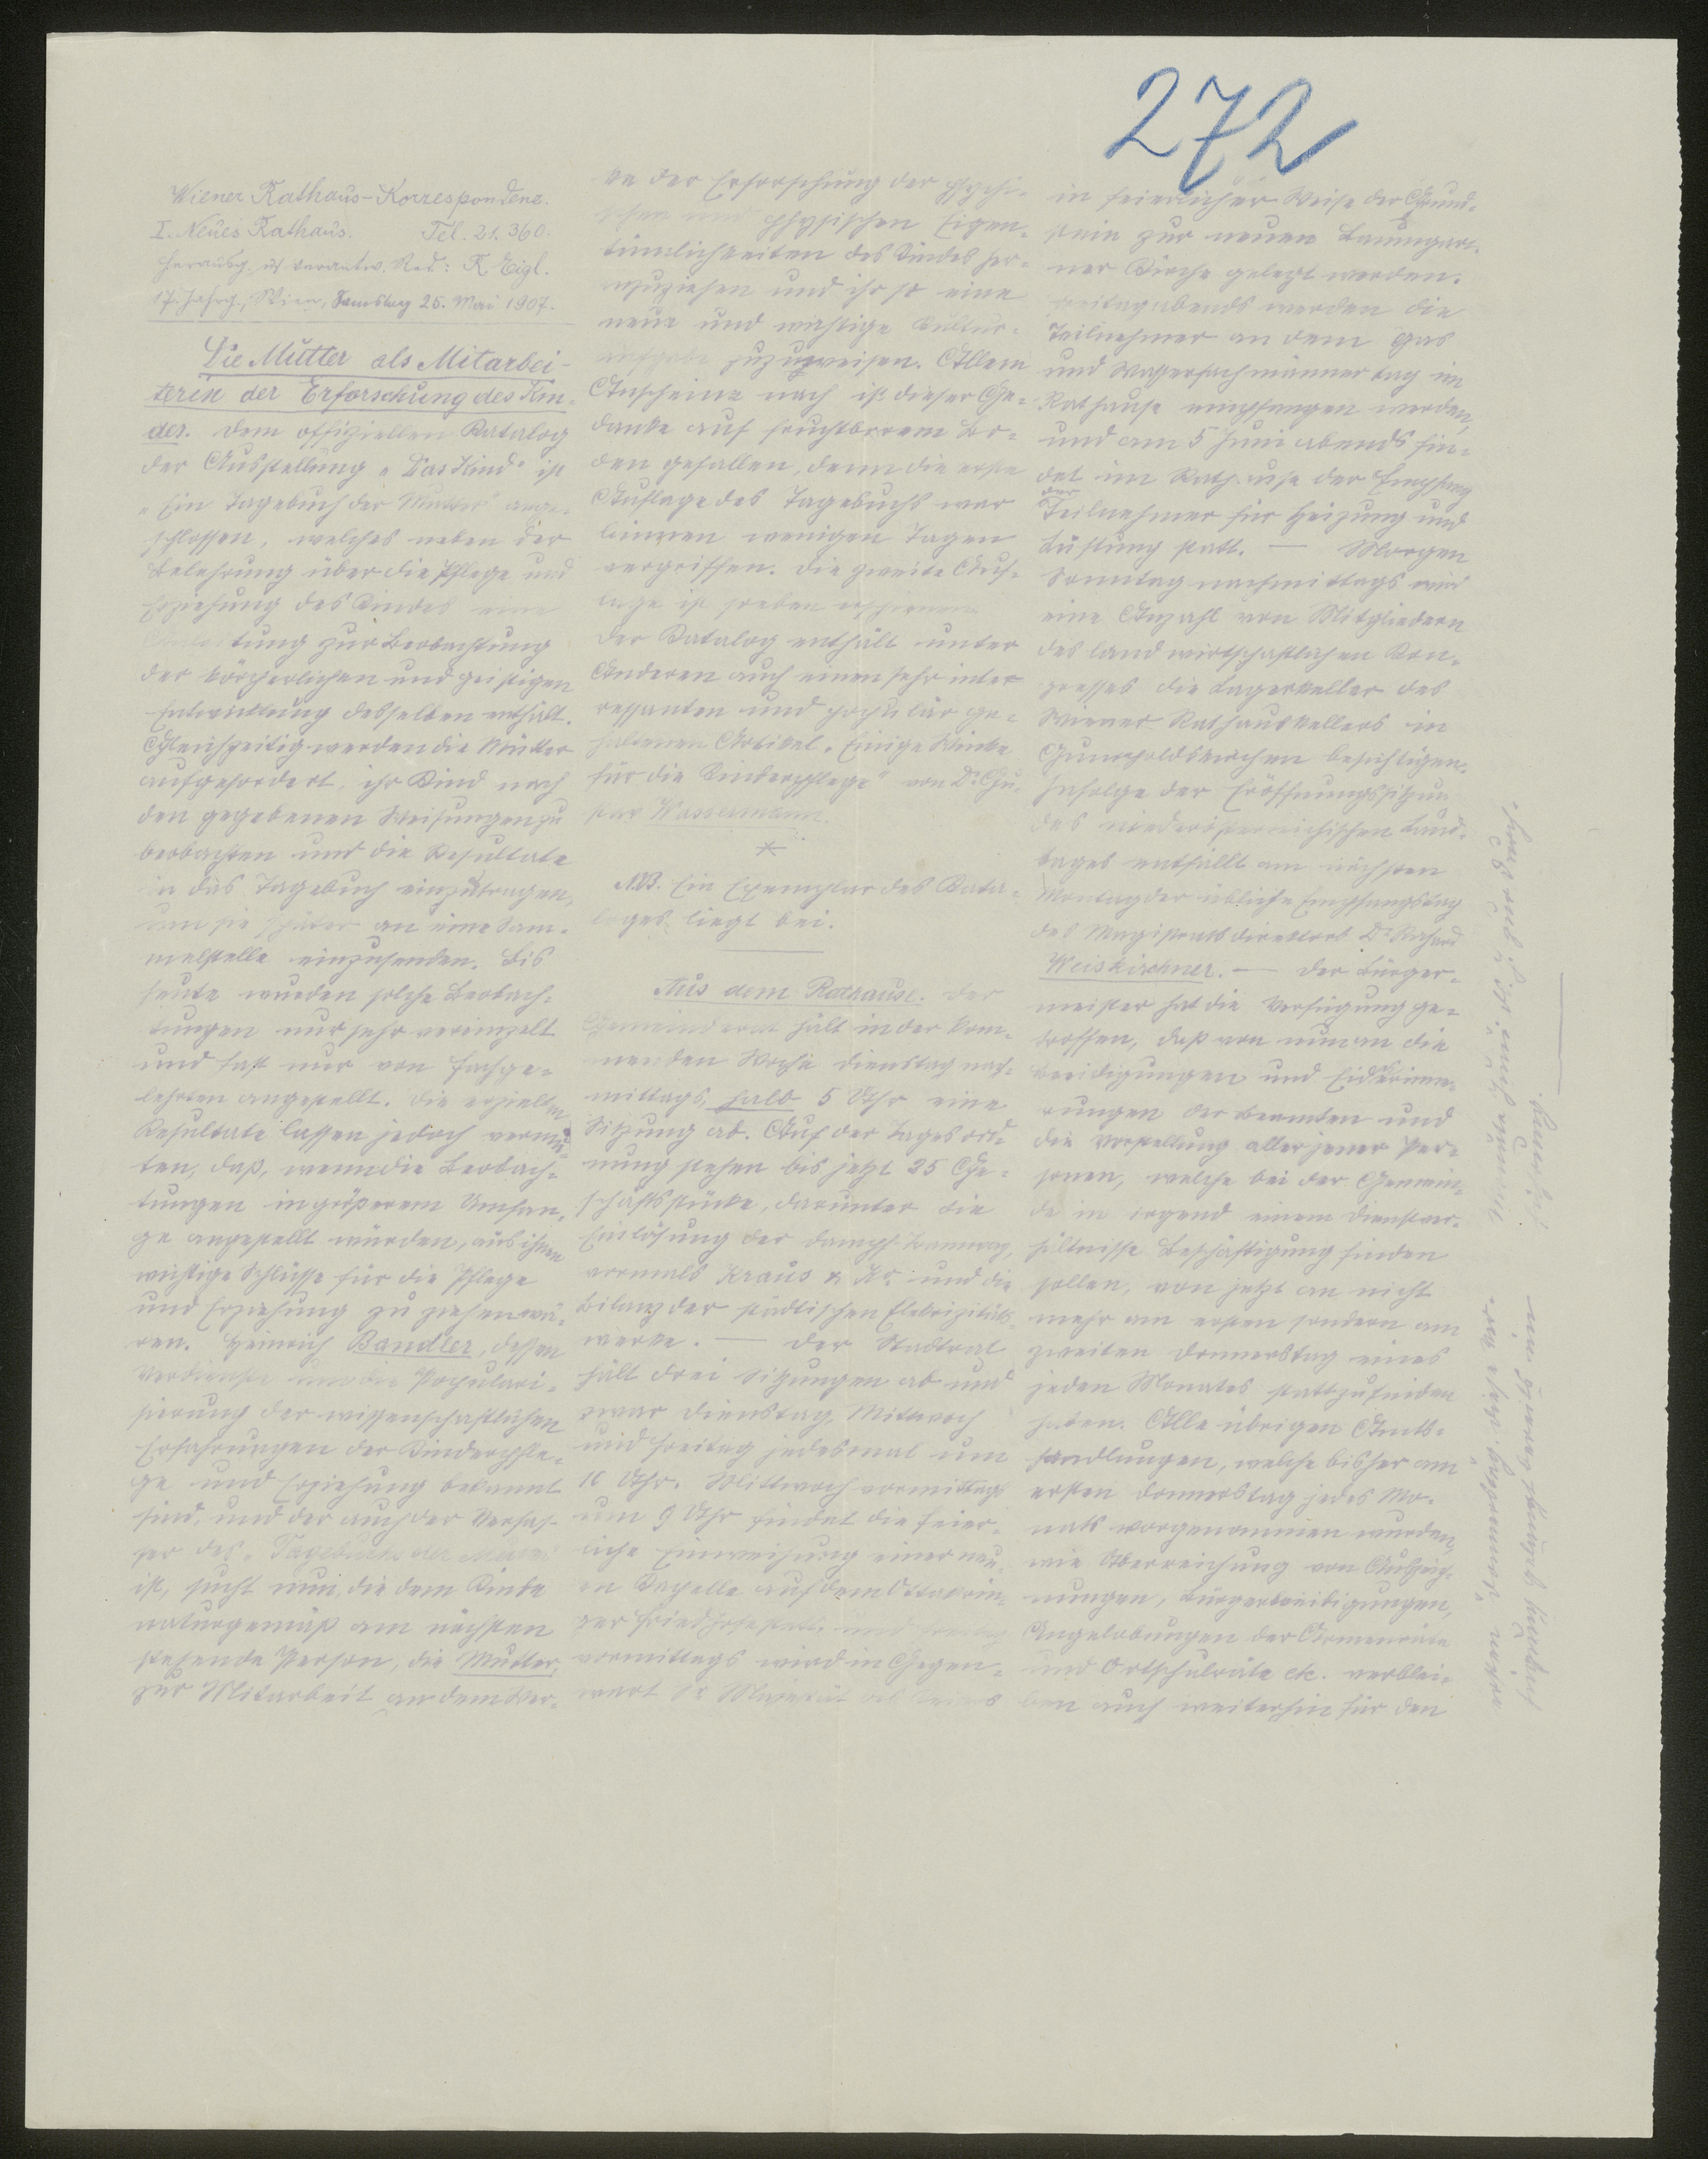 272
Wiener Rathaus-Korrespondenz.
I. Neues Rathaus. Tel. 21.360.
Herausg. u. verantw. Red: R. Eigl.
17. Jahrg., Wien, Samstag 25. Mai 1907.
Die Mutter als Mitarbei-
terin der Erforschung des Kin-
des. Dem offiziellen Katalog
der Ausstellung „Das Kind“ ist
„Ein Tagebuch der Mutter“ ange-
schlossen, welches neben der
Belehrung über die Pflege und
Erziehung des Kindes eine
Anleitung zur Beobachtung
der körperlichen und geistigen
Entwicklung desselben enthält.
Gleichzeitig werden die Mütter
aufgefordert, ihr Kind nach
den gegebenen Weisungen zu
beobachten und die Resultate
in das Tagebuch einzutragen,
um sie später an eine Sam-
melstelle einzusenden. Bis
heute wurden solche Beobach-
tungen nur sehr vereinzelt
und fast nur von Fachge-
lehrten angestellt. Die erzielten
Resultate lassen jedoch vermu-
ten, daß, wenn die Beobach-
tungen in größerem Umfan-
ge angestellt würden, aus ihnen
wichtige Schlüsse für die Pflege
und Erziehung zu ziehen wä-
ren. Heinrich Bandler, dessen
Verdienste um die Populari-
sierung der wissenschaftlichen
Erfahrungen der Kinderpfle-
ge und Erziehung bekannt
sind, und der auch der Verfas-
ser des „Tagebuchs der Mutter“
ist, sucht nun, die dem Kinde
naturgemäß am nächsten
stehende Person, die Mutter,
zur Mitarbeit an dem Wer-
ke der Erforschung der psychi-
schen und physischen Eigen-
tümlichkeiten des Kindes her-
anzuziehen und ihr so eine
neue und wichtige Kultur-
aufgabe zuzuweisen. Allem
Anscheine nach ist dieser Ge-
danke auf fruchtbarem Bo-
den gefallen, denn die erste
Auflage des Tagebuchs war
binnen wenigen Tagen
vergriffen. Die zweite Auf-
lage ist soeben erschienen.
Der Katalog enthält unter
Anderen auch einen sehr inter
ressanten und populär ge-
haltenen Artikel „Einige Winke
für die Kinderpflege“ von Dr. Gu-
stav Wassermann.
N.B. Ein Exemplar des Kata-
loges liegt bei.
Aus dem Rathause. Der
Gemeinderat hält in der kom-
menden Woche Dienstag nach-
mittags, halb 5 Uhr eine
Sitzung ab. Auf der Tagesord-
nung stehen bis jetzt 25 Ge-
schäftsstücke, darunter die
Einlösung der Dampf-Tramway,
vormals Krauß & Ko. und die
Bilanz der städtischen Elektrizitäts-
werke. — Der Stadtrat
hält drei Sitzungen ab und
zwar Dienstag, Mittwoch
und Freitag jedesmal um
10 Uhr. Mittwoch vormittags
um 9 Uhr findet die feier-
liche Einweihung einer neu-
en Kapelle auf dem Ottakrin-
ger Friedhofe statt, und Freitag
vormittags wird in Gegen-
wart Sr. Majestät des Kaisers
in feierlicher Weise der Grund-
stein zur neuen Baumgart-
ner Kirche gelegt werden.
Freitag abends werden die
Teilnehmer an dem Gas
und Wasserfachmännertag im
Rathause empfangen werden,
und am 5 Juni abends fin-
det im Rathause der Empfang
der Teilnehmer für Heizung und
Lüftung statt. — Morgen
Sonntag nachmittags wird
eine Anzahl von Mitgliedern
des landwirtschaftlichen Kon-
gresses die Lagerkeller des
Wiener Rathauskellers in
Gumpoldskirchen besichtigen.
Infolge der Eröffnungssitzung
des niederösterreichischen Land-
tages entfällt am nächsten
Montag der übliche Empfangstag
des Magistratsdirektors Dr. Richard
Weiskirchner. — Der Bürger-
meister hat die Verfügung ge-
troffen, daß von nun an die
Beeidigungen und Eideserinne-
rungen der Beamten und
die Vorstellung aller jener Per-
sonen, welche bei der Gemein-
de in irgend einem Dienstver-
hältnisse Beschäftigung finden
sollen, von jetzt an nicht
mehr am ersten sondern am
zweiten Donnerstag eines
jeden Monates stattzufinden
haben. Alle übrigen Amts-
handlungen, welche bisher am
ersten Donnerstag jedes Mo-
nats vorgenommen wurden,
wie Überreichung von Auszeich-
nungen, Bürgerbeeidigungen,
Angelobungen der Armenräte
und Ortschulräte etc. verblei-
ben auch weiterhin für den
ersten Donnerstag